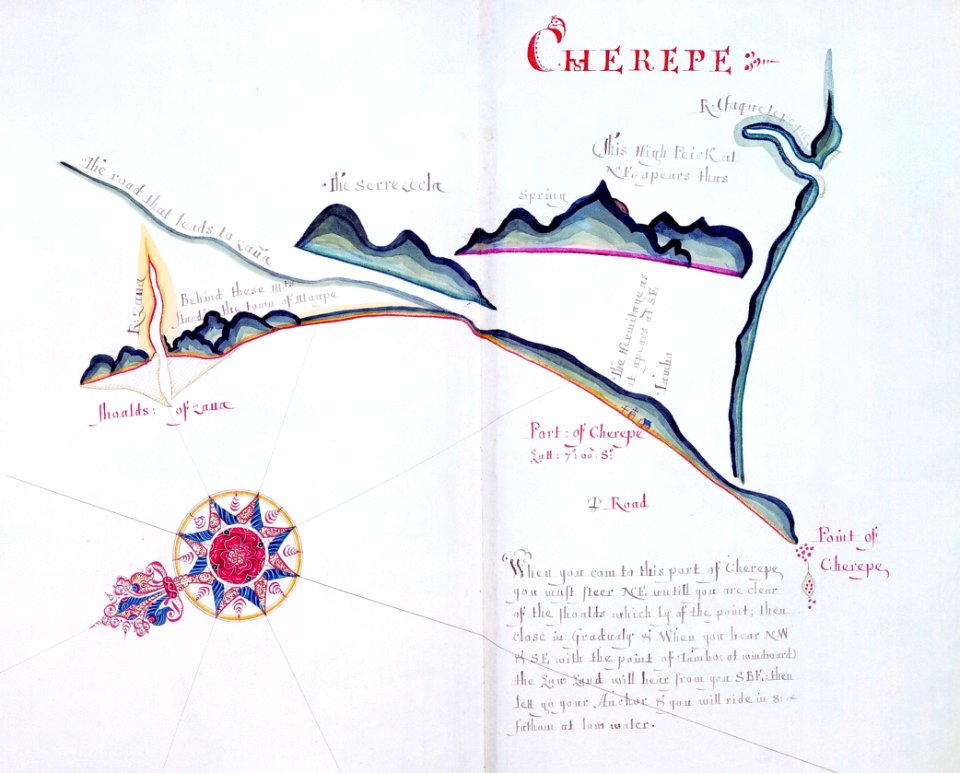 CHEREPE
This High Peick at
NE: apears thus
Spring
The road that leads to Zaña
R: Zana
Behind these Mts
stands the town of
The Hermitage as
it apears at SE
Shoalds: of Zana
Port: of Cherepe
Latt: 7°: 00': S:
Road
Point of
Cherepe
When you com to this port of Cherepe
you must steer NE untill you are clear
of the shoalds which ly of the point; then
close in Gradualy & When you bear NW
& SE with the point of Tambo (at windward)
the Low Land will bear from you SBE: then
lett go your Anchor & you will ride in 8:
fathom at low water.